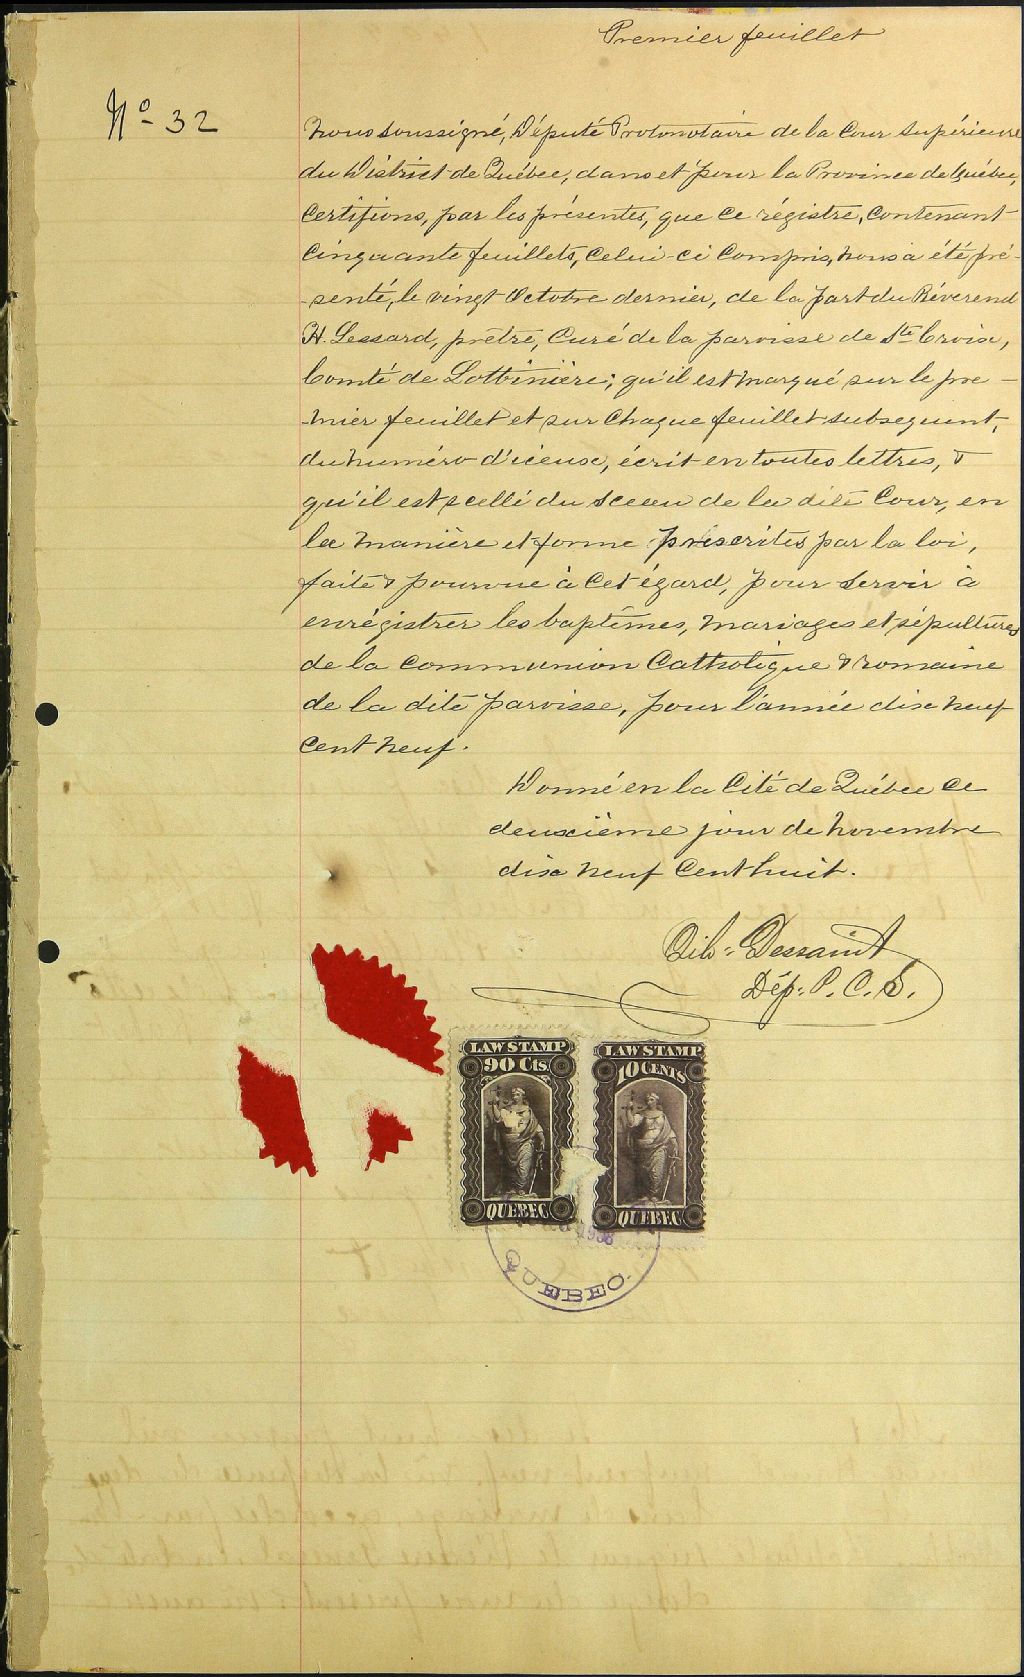 Premier feuillet
No 32
Nous soussigné, Député Protonotaire de la Cour Supérieure
du District de Québec, dans et pour la Province de Québec,
Certifions, par les présentes, que ce régistre, contenant
Cinquante feuillets, celui-ci compris, nous a été pré-
-senté, le vingt Octobre dernier, de la part du Révérend
H. Lessard, prêtre, Curé de la paroisse de Ste Croix,
Comté de Lotbinière; qu'il est marqué sur le pre-
-mier feuillet et sur chaque feuillet subsequent,
du numéro d'iceux, écrit en toutes lettres, &
qu'il est scellé du sceau de la dite Cour, en
la manière et forme préscrites par la loi,
faite & pourvue à cet égard, pour servir à
enrégistrer les baptêmes, mariages et sépultures
de la communion Catholique & romaine
de la dite paroisse, pour l'année dix neuf
cent neuf.
Donné en la Cité de Québec ce
deuxième jour de Novembre
dix neuf cent huit.
Dessaint
Dép. P. C. S.
LAW STAMP
90 Cts.
QUEBEC
LAW STAMP
10 CENTS
QUEBEC
1908
QUEBEC.